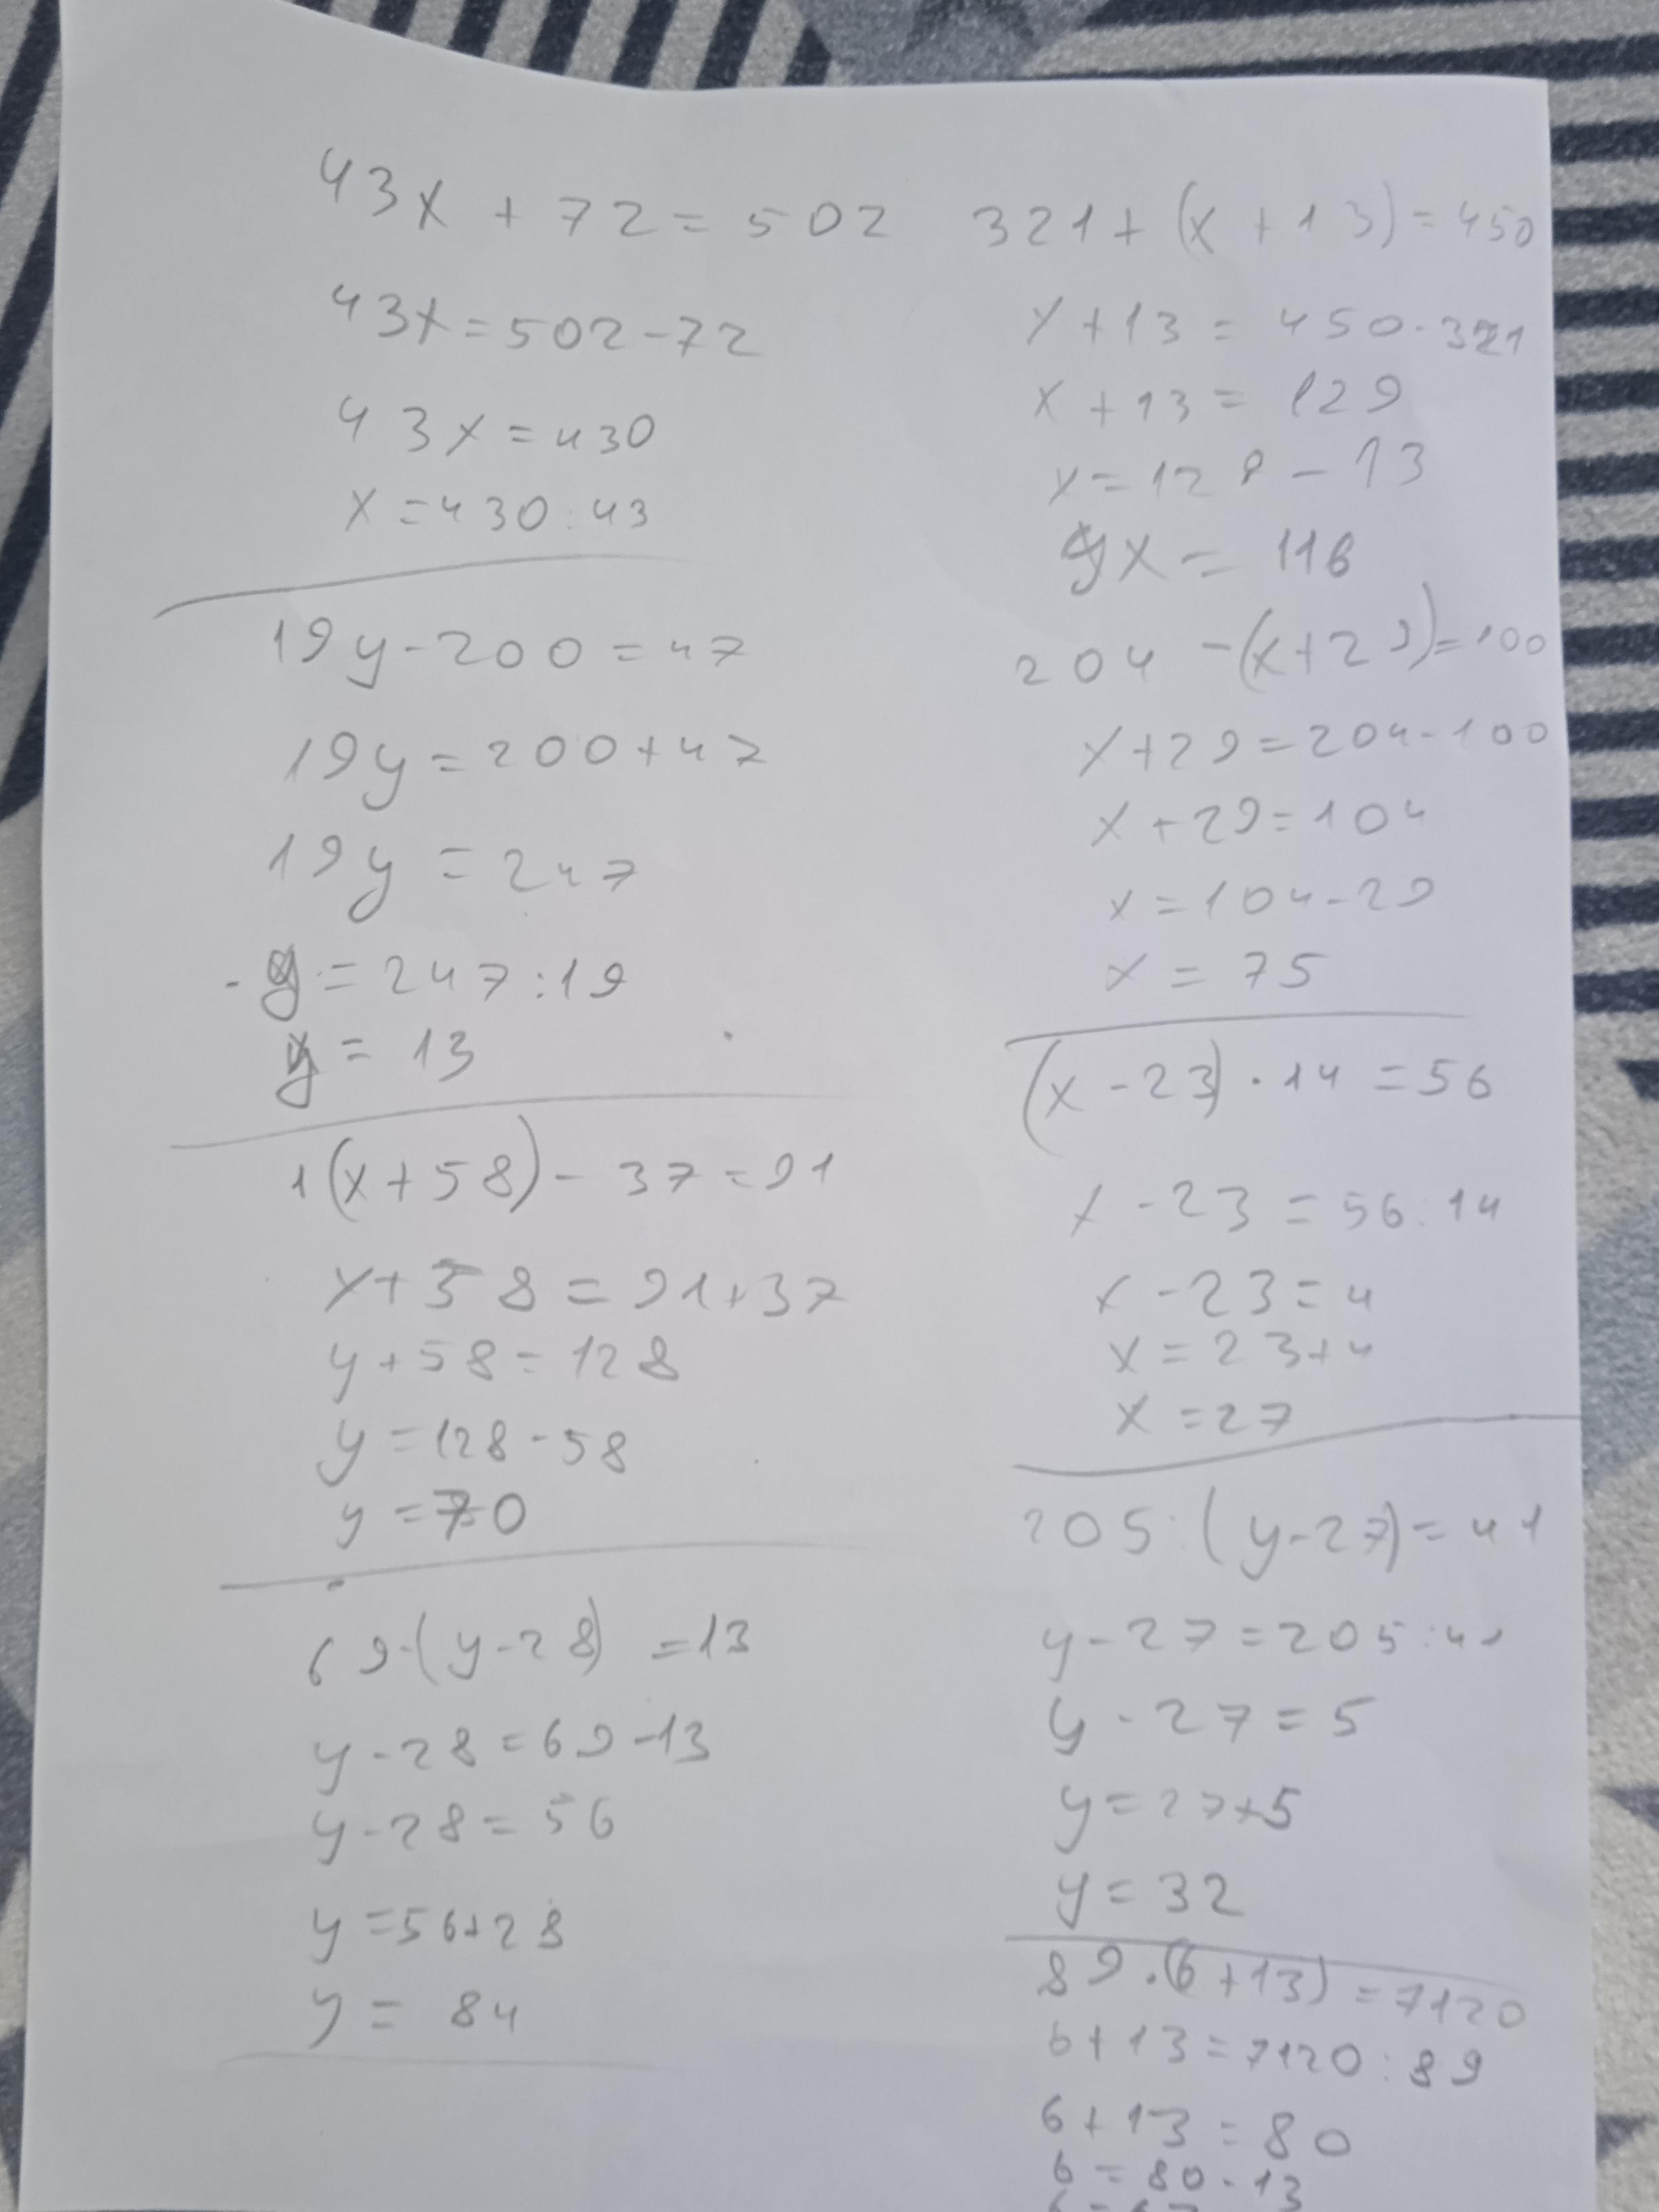 43x + 72 = 502
43x = 502 - 72
43x = 430
x = 430 : 43
19y - 200 = 47
19y = 200 + 47
19y = 247
y = 247 : 19
y = 13
1(x + 58) - 37 = 91
x + 58 = 91 + 37
y + 58 = 128
y = 128 - 58
y = 70
69 - (y - 28) = 13
y - 28 = 69 - 13
y - 28 = 56
y = 56 + 28
y = 84
321 + (x + 13) = 450
x + 13 = 450 - 321
x + 13 = 129
x = 129 - 13
x = 116
204 - (x + 29) = 100
x + 29 = 204 - 100
x + 29 = 104
x = 104 - 29
x = 75
(x - 23) · 14 = 56
x - 23 = 56 : 14
x - 23 = 4
x = 23 + 4
x = 27
205 : (y - 27) = 41
y - 27 = 205 : 41
y - 27 = 5
y = 27 + 5
y = 32
89 · (6 + 13) = 7120
6 + 13 = 7120 : 89
6 + 13 = 80
6 = 80 - 13